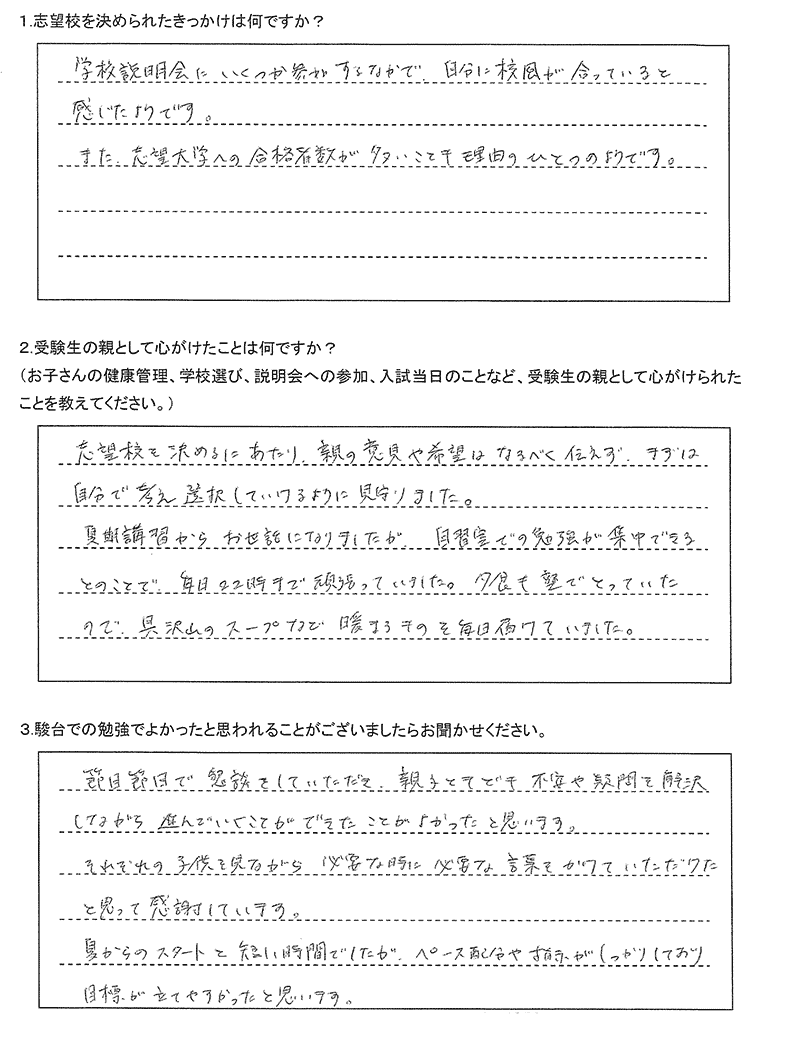 1.志望校を決められたきっかけは何ですか？
学校説明会にいくつか参加するなかで、自分に校風が合っていると
感じたようです。
また、志望大学への合格者数が多いことも理由のひとつのようです。
2.受験生の親として心がけたことは何ですか？
（お子さんの健康管理、学校選び、説明会への参加、入試当日のことなど、受験生の親として心がけられた
ことを教えてください。）
志望校を決めるにあたり、親の意見や希望はなるべく伝えず、まずは
自分で考え選択していけるように見守りました。
夏期講習からお世話になりましたが、自習室での勉強が集中できる
とのことで、毎日22時まで頑張っていました。夕食も塾でとっていた
ので、具沢山のスープなど暖まるものを毎日届けていました。
3.駿台での勉強でよかったと思われることがございましたらお聞かせください。
節目節目で懇談をしていただき、親子ともども不安や疑問を解決
しながら進んでいくことができたことがよかったと思います。
それぞれの子供を見ながら必要な時に必要な言葉をかけていただけた
と思って感謝しています。
夏からのスタートと短い時間でしたが、ペース配分や指示がしっかりしており
目標が立てやすかったと思います。